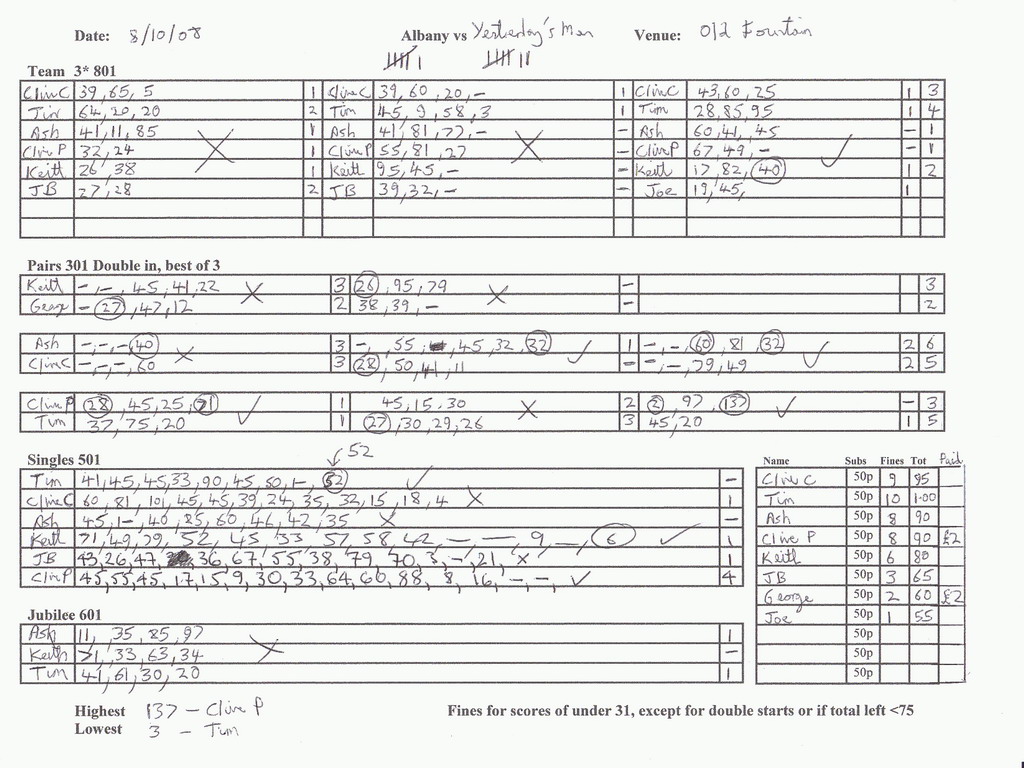 Date: 8/10/08 Albany vs Yesterday's Men Venue: Old Fountain
Team 3* 801
Clive C 39, 65, 5 1 Clive C 39, 60, 20, - 1 Clive C 43, 60, 25 1 3
Tim 64, 20, 20 2 Tim 45, 9, 58, 3 1 Tim 28, 85, 95 1 4
Ash 41, 11, 85 1 Ash 41, 81, 77, - - Ash 60, 41, 45 - 1
Clive P 32, 24 1 Clive P 55, 81, 27 - Clive P 67, 49, - - 1
Keith 26, 38 1 Keith 95, 45, - - Keith 17, 82, 40 1 2
JB 27, 28 2 JB 39, 32, - - Joe 19, 45, 1
Pairs 301 Double in, best of 3
Keith -, -, 45, 41, 22 3 26, 95, 79 - 3
George - 27, 47, 12 2 38, 39, - - 2
Ash -, -, - 40 3 -, , 55, 45, 32, 32 1 -, -, 60, 81, 32 2 6
Clive C -, -, -, 60 3 28, 50, 41, 11 - -, 79, 49 2 5
Clive P 28, 45, 25, 71 1 45, 15, 30 2 2, 97, 137 - 3
Tim 37, 75, 20 1 27, 30, 29, 26 3 45, 20 1 5
52
Singles 501 Name Subs Fines Tot Paid
Tim 41, 45, 45, 33, 90, 45, 50, 1-, 52 -
Clive C 60, 81, 101, 45, 45, 39, 24, 35, 32, 15, 18, 4 1
Ash 45, 1-, 40, 85, 60, 46, 42, 35 -
Keith 71, 49, 79, 52, 45, 33, 57, 58, 42, -, -, 9, -, 6 1
JB 43, 26, 47, 36, 67, 55, 38, 79, 70, 3, -, 21, x 1
Clive P 45, 55, 45, 17, 15, 9, 30, 33, 64, 60, 88, 8, 16, -, -, 4
Clive C 50p 9 95
Tim 50p 10 1.00
Ash 50p 8 90
Clive P 50p 8 90 £2
Keith 50p 6 80
JB 50p 3 65
George 50p 2 60 £2
Joe 50p 1 55
50p
50p
50p
Jubilee 601
Ash 11, 35, 85, 97 1
Keith 71, 33, 63, 34 -
Tim 41, 61, 30, 20 1
Highest 137 - Clive P
Lowest 3 - Tim
Fines for scores of under 31, except for double starts or if total left <75